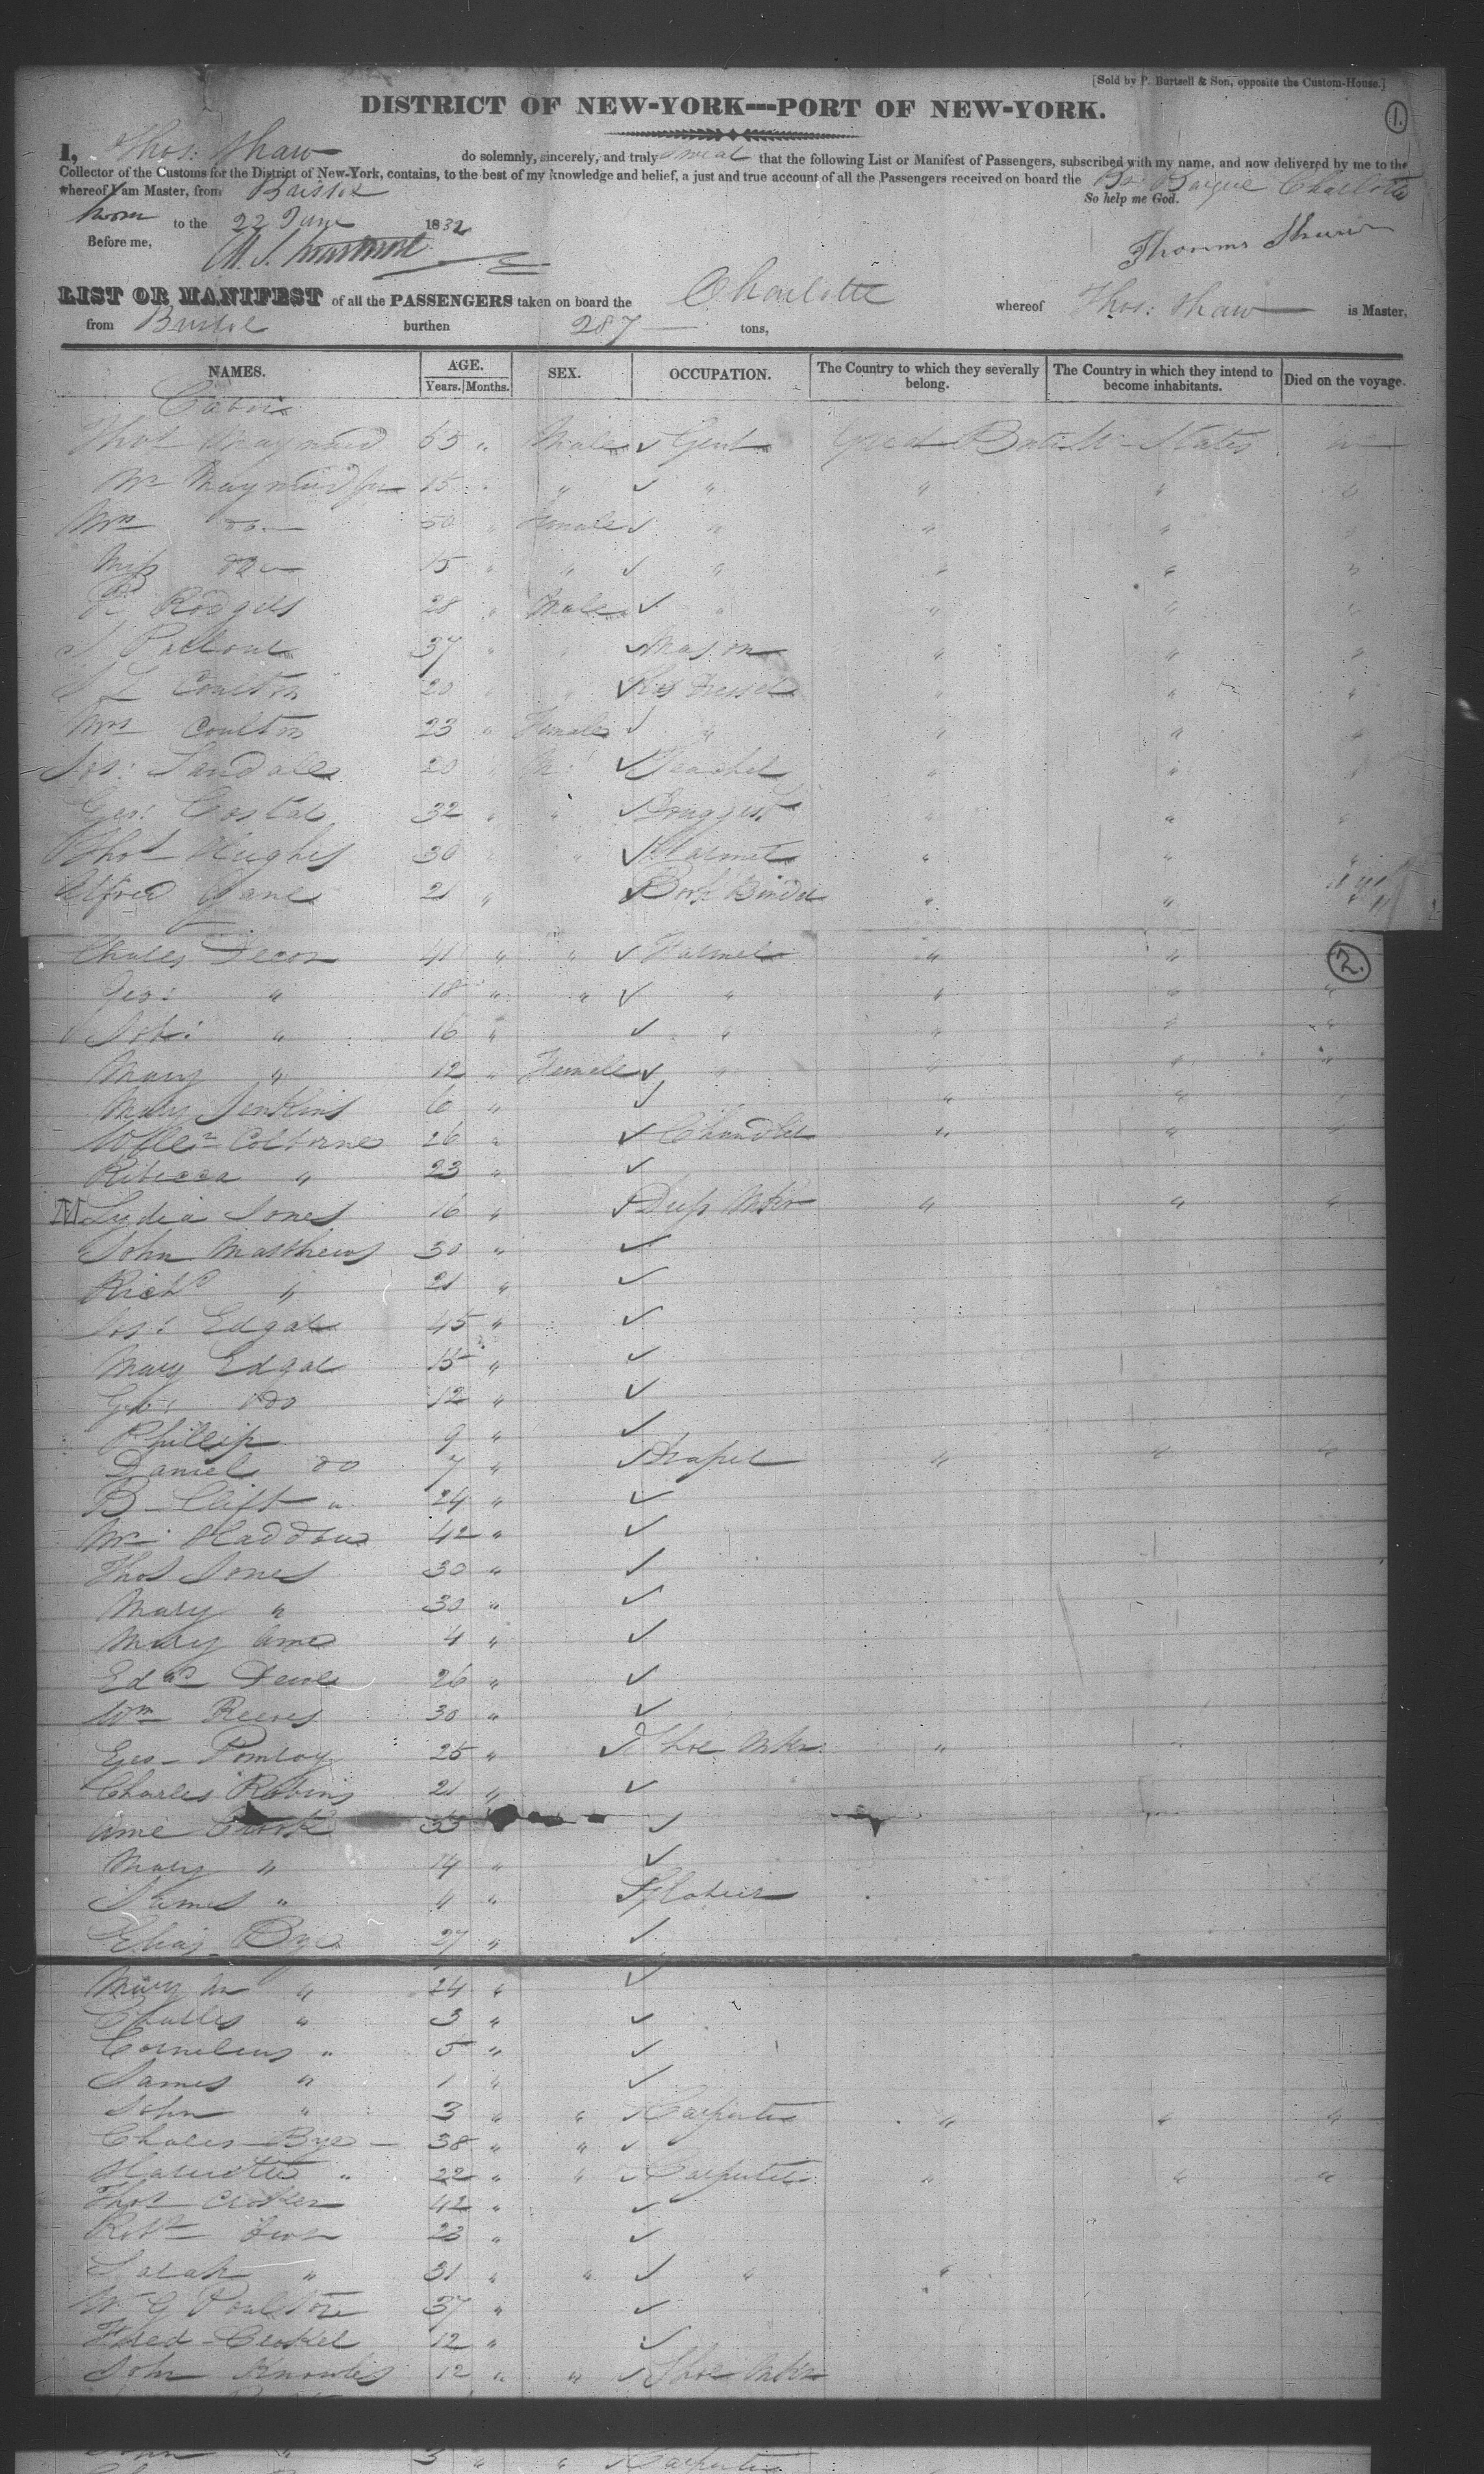 [Sold by P. Burtsell & Son, opposite the Custom-House.]
1.
DISTRICT OF NEW-YORK---PORT OF NEW-YORK.
I, Thos: Shaw do solemnly, sincerely, and truly swear that the following List or Manifest of Passengers, subscribed with my name, and now delivered by me to the
Collector of the Customs for the District of New-York, contains, to the best of my knowledge and belief, a just and true account of all the Passengers received on board the Br Barque Charlotte
whereof I am Master, from Bristol So help me God.
Sworn to the 22 June 1832
Before me, Thomas Shaw
LIST OR MANIFEST of all the PASSENGERS taken on board the Charlotte whereof Thos: Shaw is Master,
from Bristol burthen 287 tons,
NAMES. AGE. SEX. OCCUPATION. The Country to which they severally belong. The Country in which they intend to become inhabitants. Died on the voyage.
Years. Months.
Cabin
Thos Maynard 65 " Male ✓ Gent Great Britain States
Mr Maynard Jur 15 " " ✓ " " " "
Mrs do 50 " Female ✓ " " " "
Miss do 15 " " ✓ " " " "
Rodgers 28 " Male ✓ " " " "
37 " " ✓ Mason " " "
L Coulton 20 " " ✓ " " "
Mrs Coulton 23 " Female ✓ " " " "
Jos: Sandale 20 " M: ✓ Teacher " " "
Geo: Costar 32 " " ✓ Druggist " " "
Thos Hughes 30 " " ✓ Farmer " " "
Alfred Gane 21 " ✓ Book Binder " "
Charles Decon 41 " " ✓ Farmer " "
2.
Geo: " 18 " " ✓ " " " "
Job: " 16 " ✓ " " " "
Mary " 12 " Female ✓ " " " "
Mary Jenkins 6 " ✓ " "
Willm Colborne 26 " ✓ Chandler " " "
Rebecca " 23 " ✓
Lydia Jones 16 " ✓ Dress Mkr " " "
John Matthews 30 " ✓
Richd " 21 " ✓
Jos: Edgar 45 " ✓
Mary Edgar 15 " ✓
Geo: do 12 " ✓
Phillip 9 " ✓
Daniel do 7 " ✓ Draper " " "
B Clift " 24 " ✓
Mr Haddon 42 " ✓
Thos Jones 30 " ✓
Mary " 30 " ✓
Mary Ann 4 " ✓
Edwd 26 " ✓
Wm Reeves 30 " ✓
Geo Pomroy 25 " ✓ Shoe Mkr " "
Charles Robins 21 " ✓
Ann Crook 35 ✓
Mary " 14 " ✓
James " 4 " ✓ Glazier
Elias Bye 27 " ✓
Mary M " 24 " ✓
Charles " 3 " ✓
Cornelius " 5 " ✓
James " 1 " ✓
John " 3 " " ✓ Carpenter " " "
Charles Bye 38 " " ✓
Harriotte " 22 " " ✓ Carpenter " " "
Thos Croker 42 " ✓
Robt 23 " ✓
Sarah " 31 " " ✓ " "
W G Poulstone 37 " ✓
Fred Croker 12 " ✓
John Knowles 12 " " ✓ Shoe Mkr
John " 3 " " Carpenter